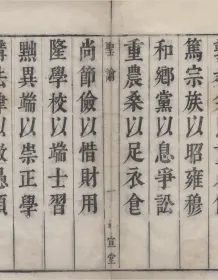 篤宗族以昭雍穆
和鄉黨以息爭訟
重農桑以足衣食
聖諭
一
宣堂
尚節儉以惜財用
隆學校以端士習
黜異端以崇正學